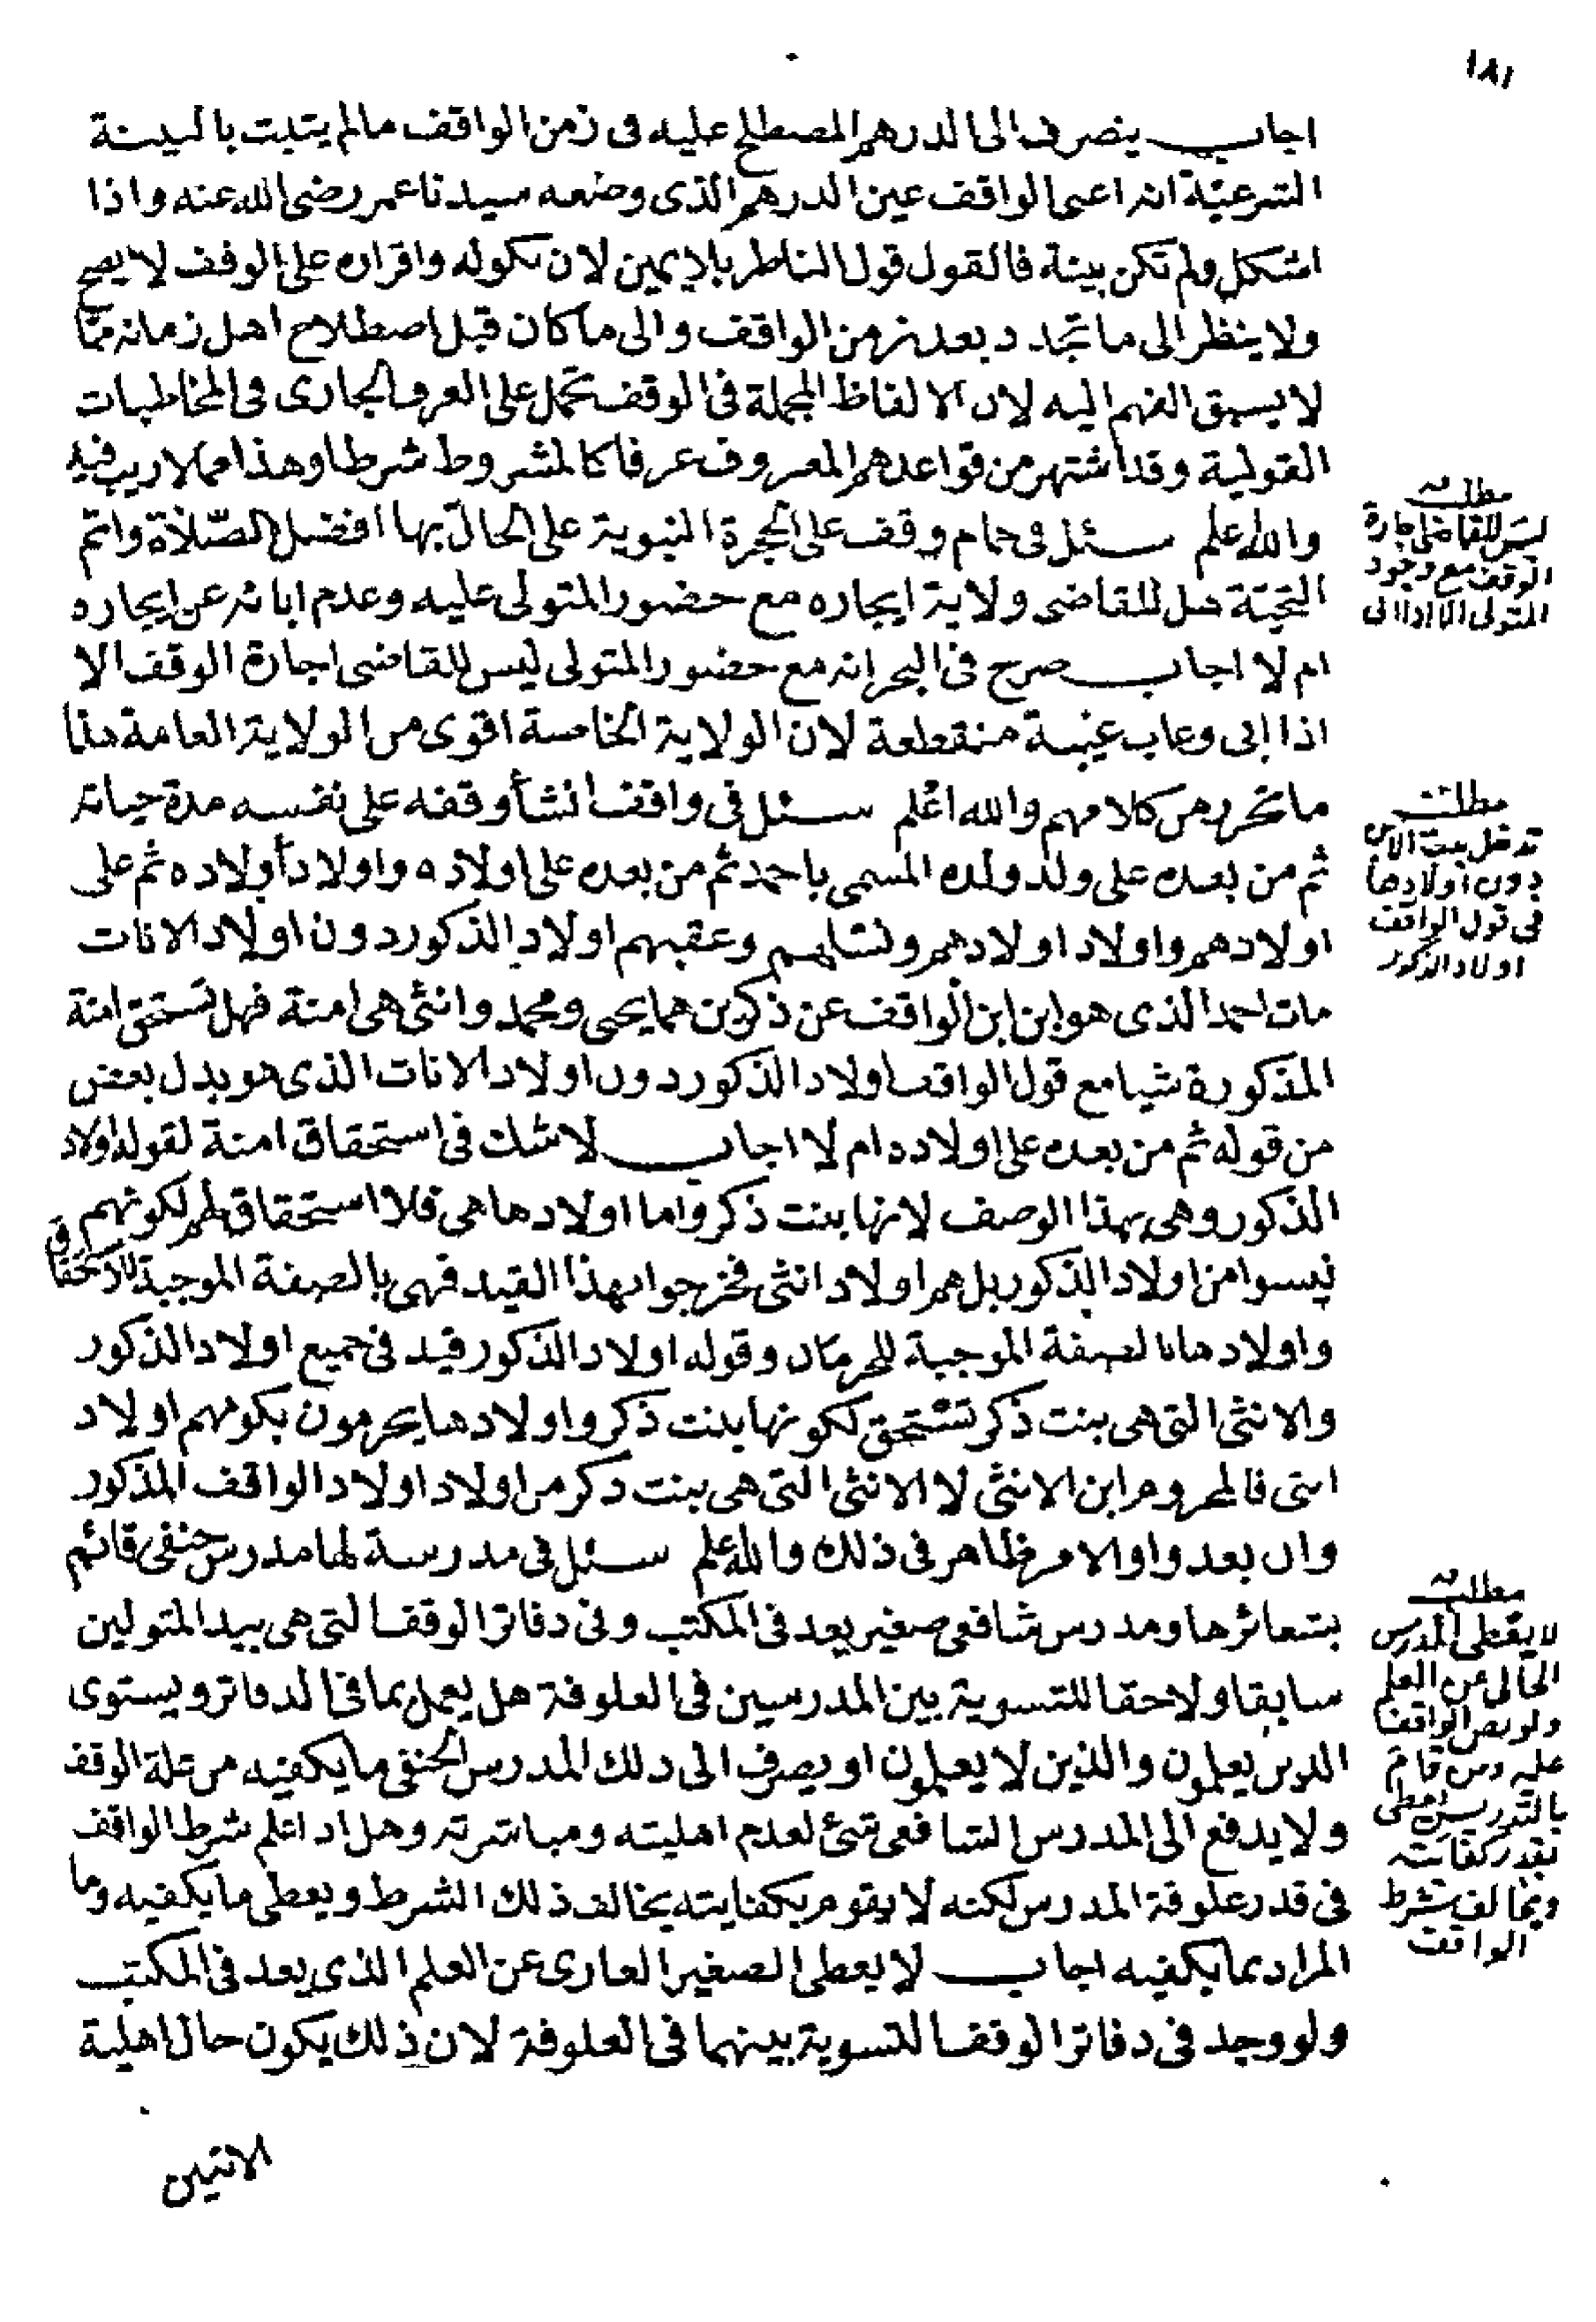 ١٨١
اجاب ينصرف الى الدرهم المصطلح عليه فى زمن الواقف مالم يثبت بالبينة
الشرعيّة انه اعنى الواقف عين الدرهم الذى وضعه سيدنا عمر رضى الله عنه واذا
اشكل ولم تكن بينة فالقول قول الناظر بلا يمين لان نكوله واقراره على الوقف لا يصح
ولا ينظر الى ما تجدد بعد زمن الواقف والى ما كان قبل اصطلاح اهل زمانه ممّا
لا يسبق الفهم اليه لان الالفاظ المجملة فى الوقف تحمل على العرف الجارى فى المخاطبات
القولية وقد اشتهر من قواعدهم المعروف عرفا كالمشروط شرطا وهذا مما لا ريب فيه
والله اعلم سئل فى حمام وقف على الحجرة النبوية على الحالّ بها افضل الصّلاة واتم
التحيّة هل للقاضى ولاية ايجاره مع حضور المتولى عليه وعدم ابائه عن ايجاره
ام لا اجاب صرح فى البحر انه مع حضور المتولى ليس للقاضى اجارة الوقف الا
اذا ابى وغاب غيبة منقطعة لان الولاية الخاصة اقوى من الولاية العامة هذا
ما تحرر من كلامهم والله اعلم سئل فى واقف انشأ وقفه على نفسه مدة حياته
ثم من بعده على ولد ولده المسمى باحمد ثم من بعده على اولاده واولاد أولاده ثم على
اولادهم واولاد اولادهم ونسلهم وعقبهم اولاد الذكور دون اولاد الاناث
مات احمد الذى هو ابن ابن الواقف عن ذكرين هما يحيى ومحمد وانثى هى امنة فهل تستحق امنة
المذكورة شيا مع قول الواقف اولاد الذكور دون اولاد الاناث الذى هو بدل بعض
من قوله ثم من بعده على اولاده ام لا اجاب لا شك فى استحقاق امنة لقوله اولاد
الذكور وهى بهذا الوصف لانها بنت ذكر واما اولادها هى فلا استحقاق لهم لكونهم
ليسوا من اولاد الذكور بل هم اولاد انثى فخرجوا بهذا القيد فهى بالصفة الموجبة للاستحقاق
واولادها بالصفة الموجبة للحرمان وقوله اولاد الذكور قيد فى جميع اولاد الذكور
والانثى التى هى بنت ذكر تستحق لكونها بنت ذكر واولادها يحرمون بكونهم اولاد
انثى فالمحروم ابن الانثى لا الانثى التى هى بنت ذكر من اولاد اولاد الواقف المذكور
وان بعدوا والامر ظاهر فى ذلك والله اعلم سئل فى مدرسة لها مدرس حنفى قائم
بشعائرها ومدرس شافعى صغير يعد فى المكتب وفى دفاتر الوقف التى هى بيد المتولين
سابقا ولاحقا للتسوية بين المدرسين فى العلوفة هل يعمل بما فى الدفاتر ويستوى
الذين يعلمون والذين لا يعلمون او يصرف الى ذلك المدرس الحنفى ما يكفيه من غلة الوقف
ولا يدفع الى المدرس الشافعى شئ لعدم اهليته ومباشرته وهل اذا علم شرط الواقف
فى قدر علوفة المدرس لكنه لا يقوم بكفايته يخالف ذلك الشرط ويعطى ما يكفيه وما
المراد بما يكفيه اجاب لا يعطى الصغير العارى عن العلم الذى يعد فى المكتب
ولو وجد فى دفاتر الوقف التسوية بينهما فى العلوفة لان ذلك يكون حال اهلية
الاثنين
مطلب
ليس للقاضى اجارة
الوقف مع وجود
المتولى الا اذا ابى
مطلب
تدخل بنت الابن
دون اولادها
فى قول الواقف
اولاد الذكور
مطلب
لا يعطى المدرس
الخالى عن العلم
ولو نص الواقف
عليه ومن قام
بالتدريس يعطى
بقدر كفايته
ويخالف شرط
الواقف